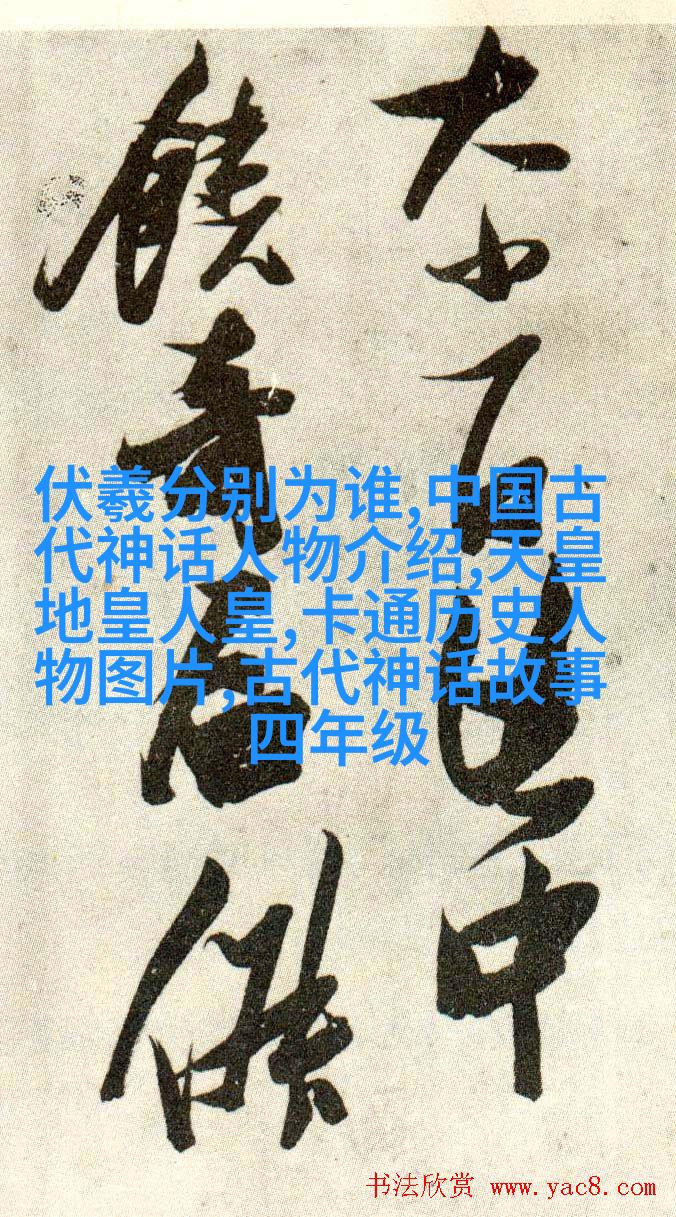 大小中
饒奇
伏羲分别为谁,中国古
代神话人物介绍,天皇
地皇人皇,卡通历史人
物图片,古代神话故事
四年级
书法欣赏 www.yac8.com